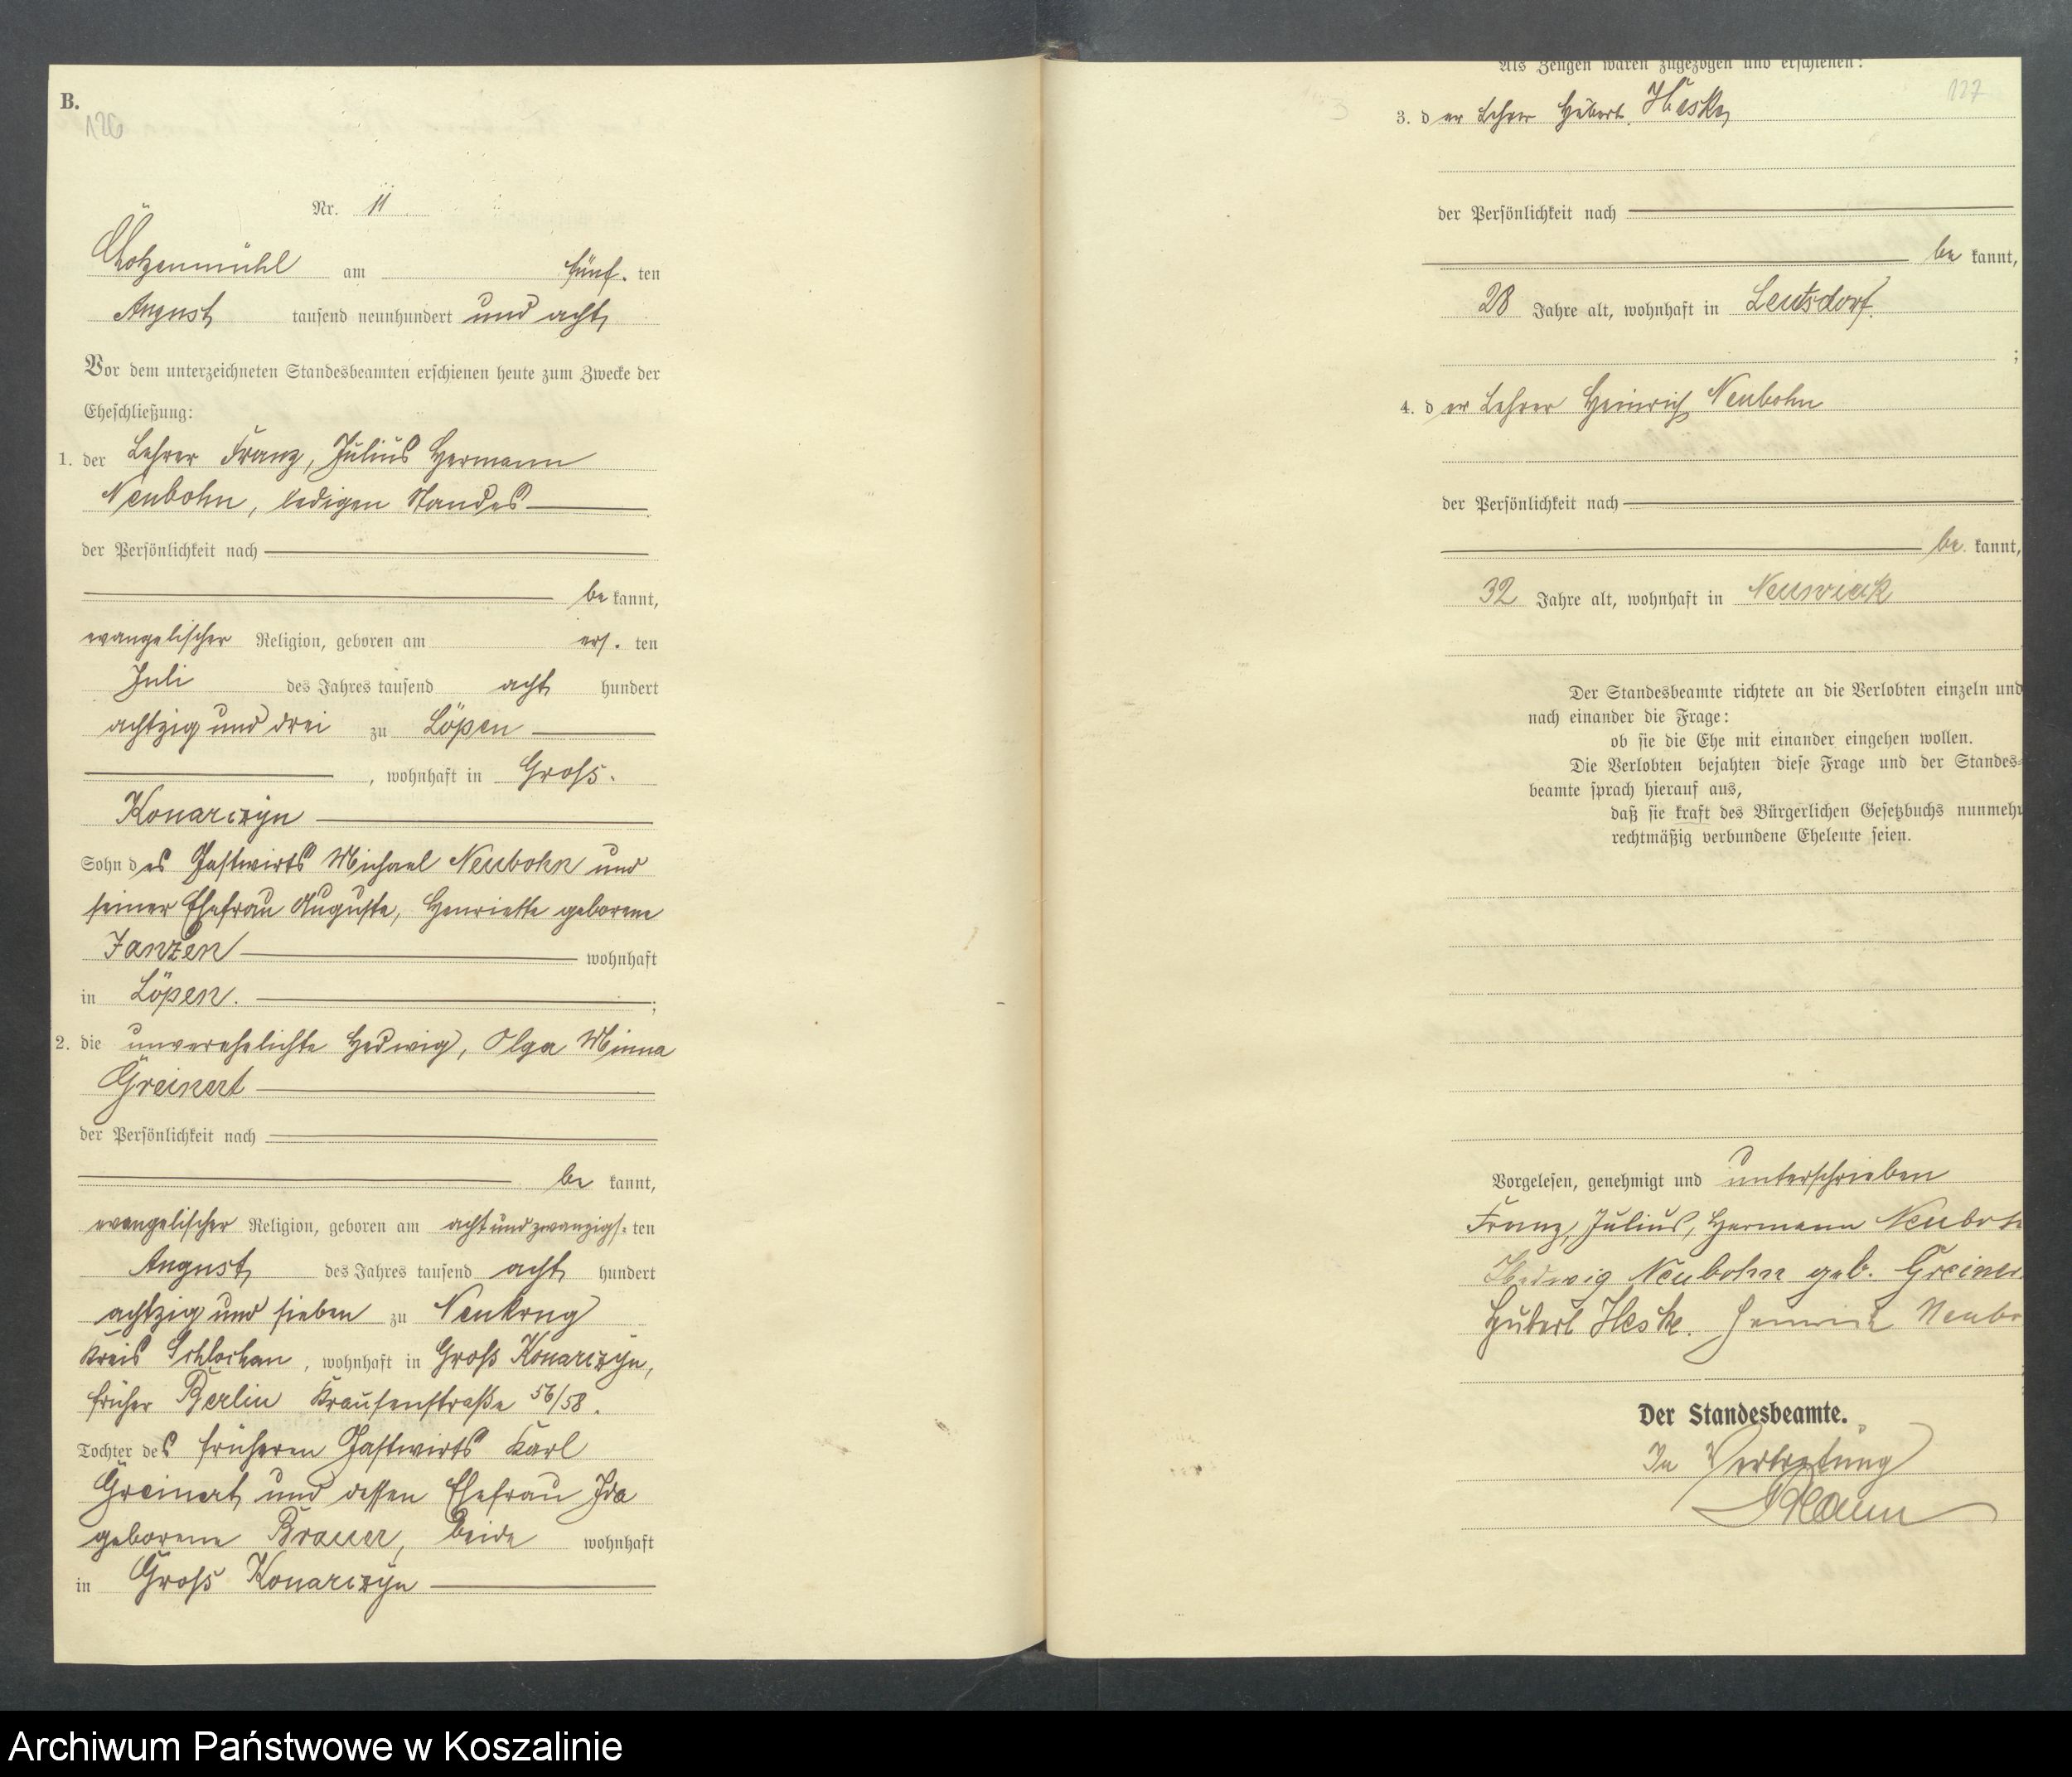 B.
126
Nr. 11
Chotzenmühl am fünf. ten
August tausend neunhundert und acht
Vor dem unterzeichneten Standesbeamten erschienen heute zum Zwecke der
Eheschließung:
1. der Lehrer Franz, Julius Hermann
Neubohn, ledigen Standes
der Persönlichkeit nach
be kannt,
evangelischer Religion, geboren am ers. ten
Juli des Jahres tausend acht hundert
achtzig und drei zu Löpen
, wohnhaft in Groß.
Konarczyn
Sohn des Gastwirts Michael Neubohn und
seiner Ehefrau Auguste, Henriette geborene
Janzen wohnhaft
in Löpen. ;
2. die unverehelichte Hedwig, Olga Minna
Greinert
der Persönlichkeit nach
be kannt,
evangelischer Religion, geboren am acht und zwanzigs. ten
August des Jahres tausend acht hundert
achtzig und sieben zu Neukrug
Kreis Schlochau, wohnhaft in Groß Konarczyn,
früher Berlin Krausenstraße 56/58.
Tochter des früheren Gastwirts Karl
Greinert und dessen Ehefrau Ida
geborene Brauer, beide wohnhaft
in Groß Konarczyn
127
Als Zeugen waren zugezogen und erschienen:
3. der Lehrer Hubert Heske
der Persönlichkeit nach
be kannt,
28 Jahre alt, wohnhaft in Leutsdorf.
;
4. der Lehrer Heinrich Neubohn
der Persönlichkeit nach
be. kannt,
32 Jahre alt, wohnhaft in Neuwiek
Der Standesbeamte richtete an die Verlobten einzeln und
nach einander die Frage:
ob sie die Ehe mit einander eingehen wollen.
Die Verlobten bejahten diese Frage und der Standes=
beamte sprach hierauf aus,
daß sie kraft des Bürgerlichen Gesetzbuchs nunmehr
rechtmäßig verbundene Eheleute seien.
Vorgelesen, genehmigt und unterschrieben
Franz, Julius, Hermann Neuboh
Hedwig Neubohn geb. Greiner
Hubert Heske. Heinrich Neubo
Der Standesbeamte.
In Vertretung
Archiwum Państwowe w Koszalinie